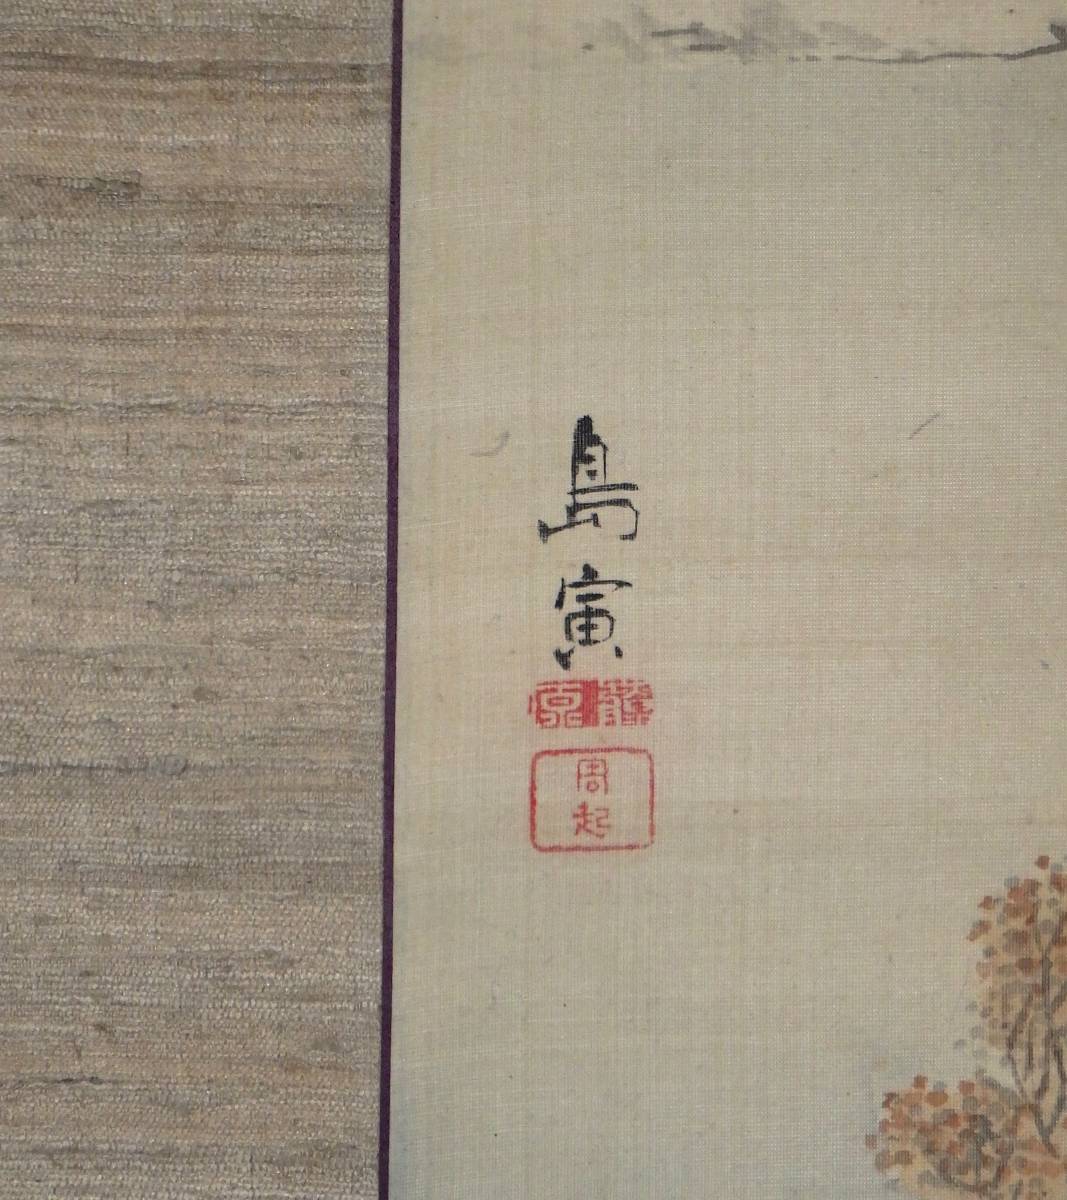 島寅
周起